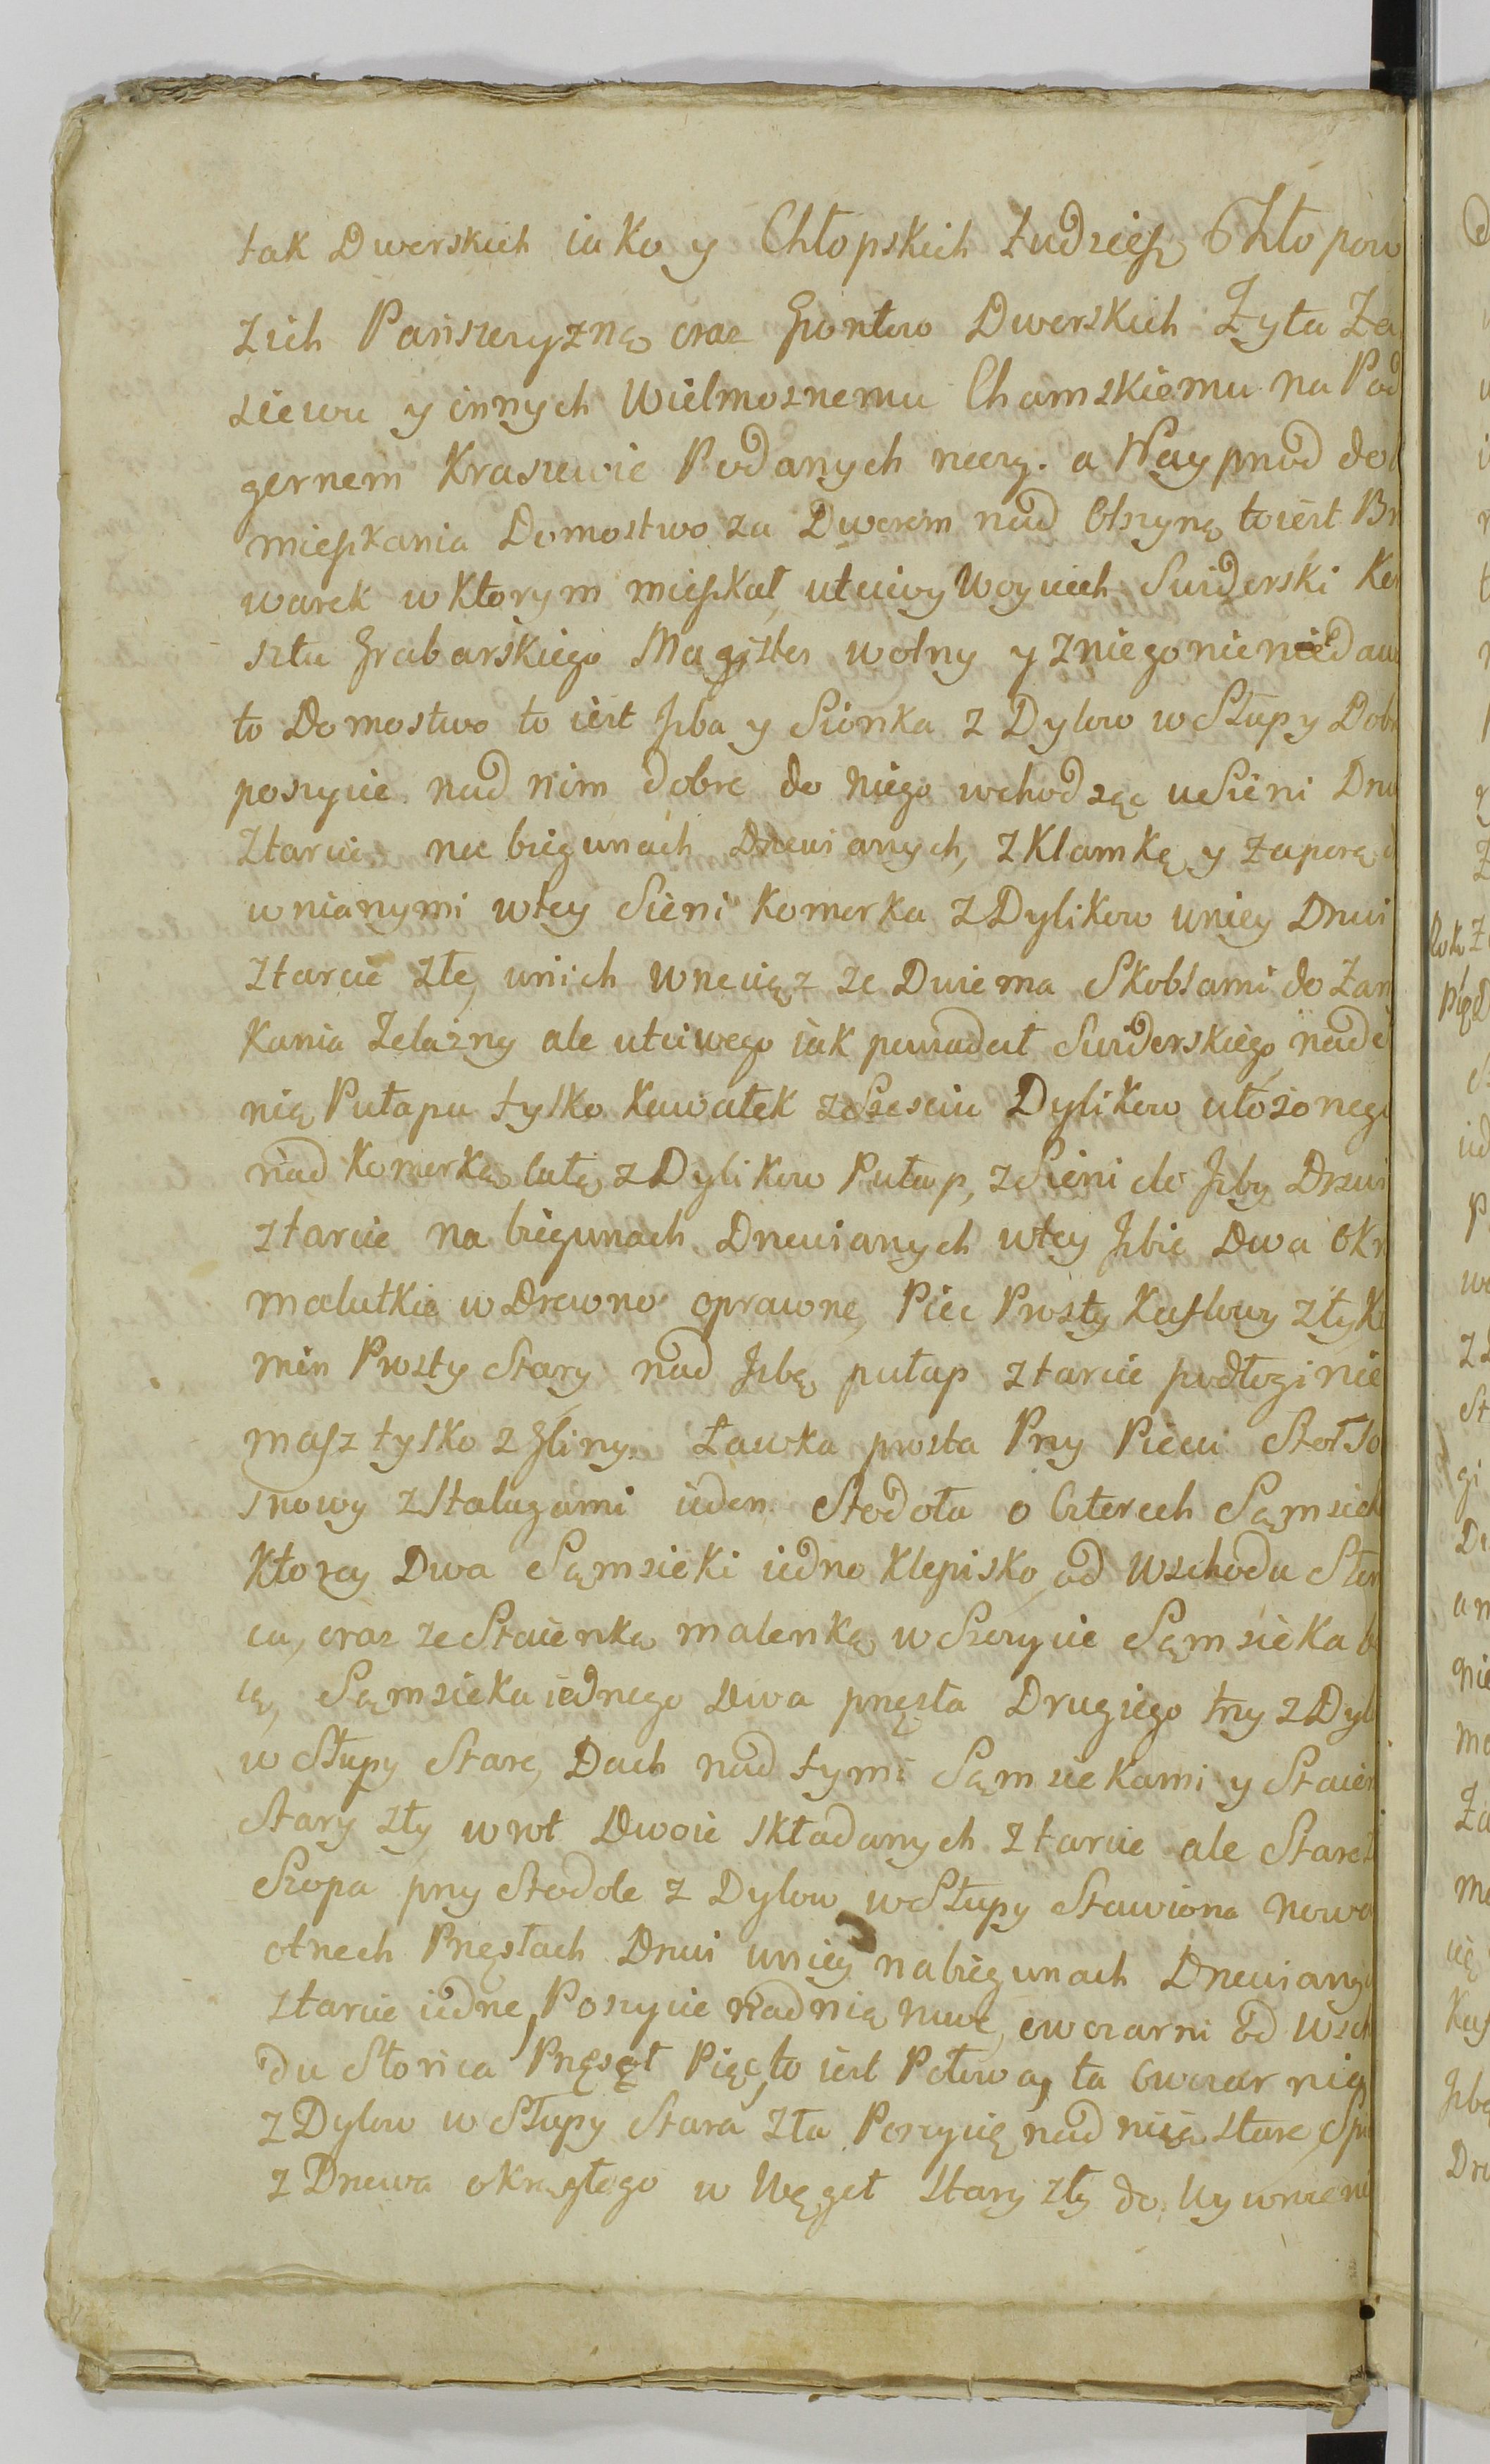 tak Dworskich iako y Chłopskich tudziesz Chłopow
z ich Panszczyzną oraz Gontow Dworskich Zyta Za
siewu y innych Wielmoznemu Chamskiemu na Pod
gornem Kraszewie Podanych naczy. a Nayprzod do
mieszkania Domostwo za Dworem nad Olszyną to iest Br
warek w ktorym mieszkał uczciwy Woyciech Swiderski Ko
sztu Grabarskiego Magister wolny y z niego nie
to Domostwo to iest Izba y Sionka z Dylow w Słupy Dobr
poszycie nad nim dobre do niego wchodząc u Sieni Drzw
z tarcic na biegunach Drewianych, z Klamką y Zaporą d
wnianymi w tey Sieni Komorka z Dylikow u niey Drzwi
z tarcic złe, u nich wrzeciąz ze Dwiema Skoblami do Zam
kania Zelazny ale utciwego iak powiadał Swiderskiego nad
nią Pułapu tylko kawałek z Szesciu Dylikow ułozonego
nad Komorką całą z Dylikow Pułap, z Sieni do Izby Drzwi
z tarcic na biegunach Drewianych w tey Izbie Dwa Okn
malutkie w Drewno oprawne, Piec Prosty Kaflowy zły Ko
min Prosty Stary nad Izbą pułap z tarcic podłogi nie
masz tylko z Gliny. Ławka prosta Przy Piecu Stoł So
snowy z Stalugami ieden Stodoła o Czterech Sąmsiek
Ktorey Dwa Sąmsieki iedno Klepisko od Wschodu Słon
ca, oraz ze Staienką malenką w Szczycie Sąmsieka b
ią, Sąmsieka iednego Dwa przęsła Drugiego trzy z Dyl
w Słupy Stare, Dach nad tymi Sąmsiekami y Staien
Stary zły wrot Dwoie składanych z tarcic ale Stare
Szopa przy Stodole z Dylow w Słupy Stawiona nowa
o trzech Przęsłach Drzwi u niey na biegunach Drewiany
z tarcic iedne, Poszycie nad nią nowe, owczarni od Wsch
du Słonca Przęseł Pięc, to iest Połowa, ta Owczarnia
z Dylow w Słupy Stara zła Poszycie nad nią stare, Sp
z Drzewa okrągłego w Węgeł Stary zły do Wywrocenia